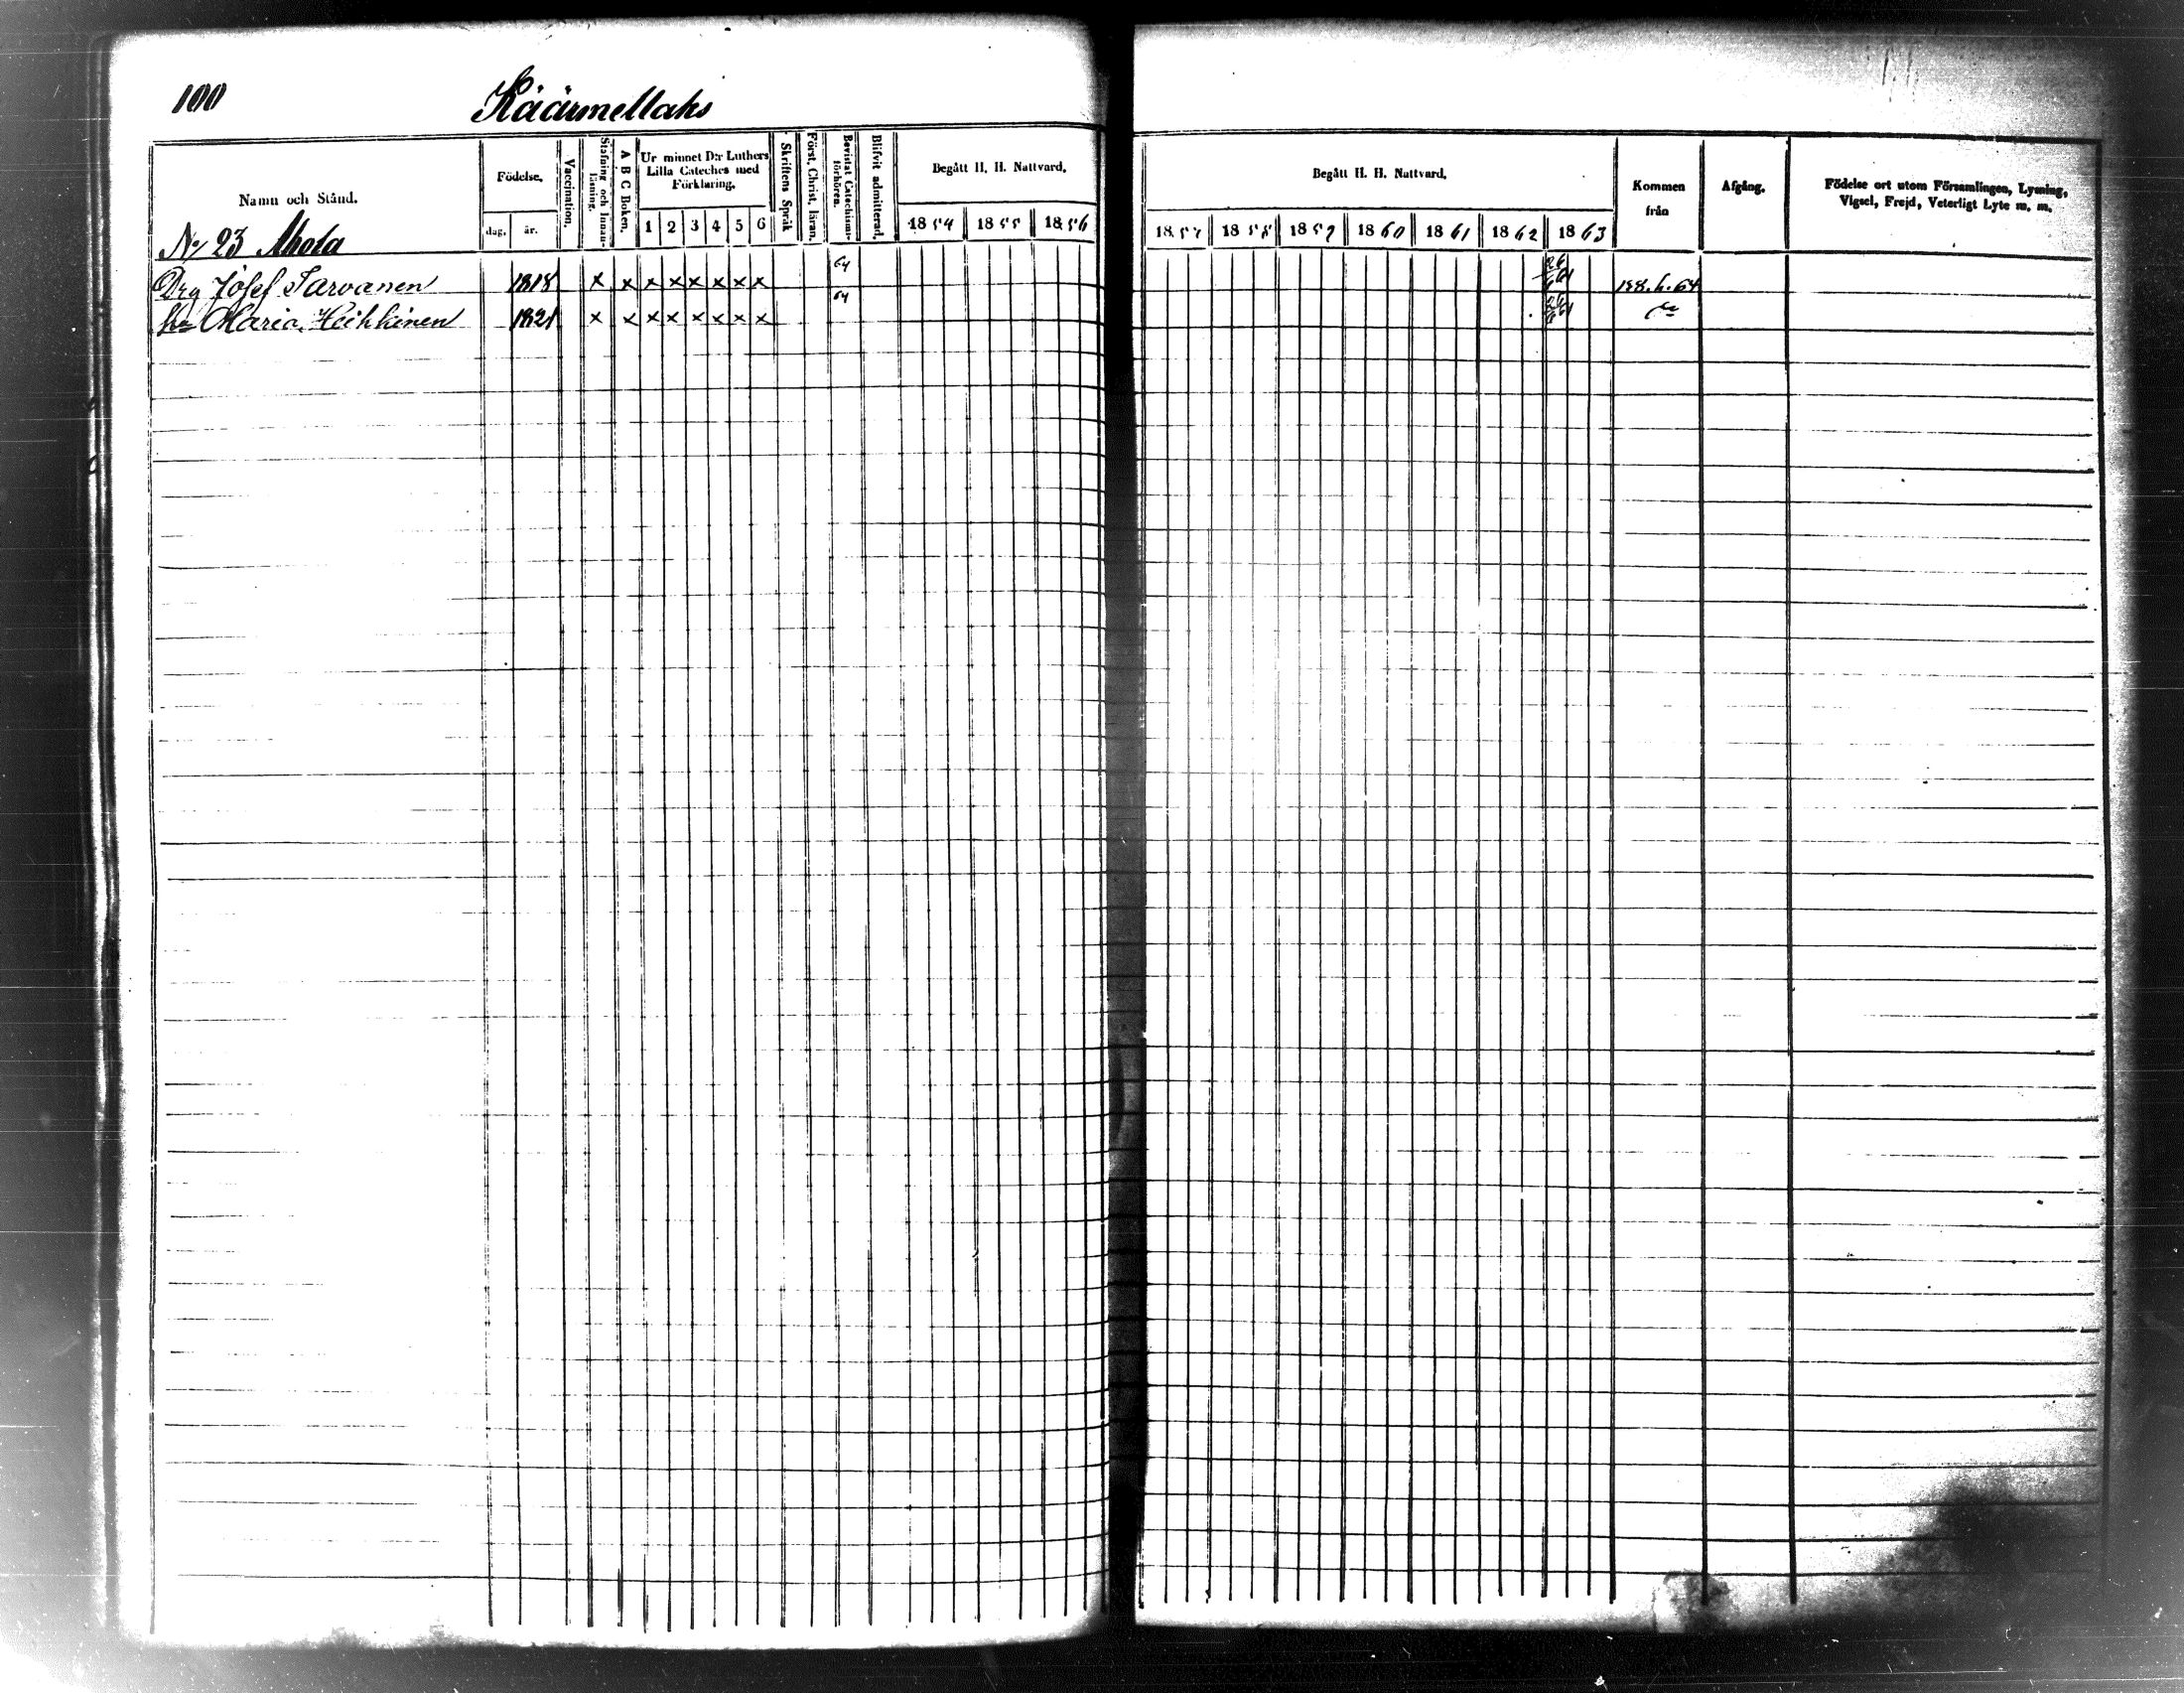 100
Käärmellaks
Namn och Stånd.
Födelse.
dag.
år.
Vaccination.
Stafning och Innanläsning.
A B C Boken.
Ur minnet D:r Luthers Lilla Cateches med Förklaring.
1 2 3 4 5 6
Skriftens Språk
Först. Christ. läran.
Bevistat Catechismiförhören.
Blifvit admitterad.
Begått H. H. Nattvard.
1854 1855 1856
Begått H. H. Nattvard.
1857 1858 1859 1860 1861 1862 1863
Kommen från
Afgång.
Födelse ort utom Församlingen, Lysning, Vigsel, Frejd, Veterligt Lyte m. m.
No 23 Ahola
Drg Josef Tarvanen 1818 x x x x x x x x 64 198.h.64
h Maria Heikkinen 1821 x x x x x x x x 64